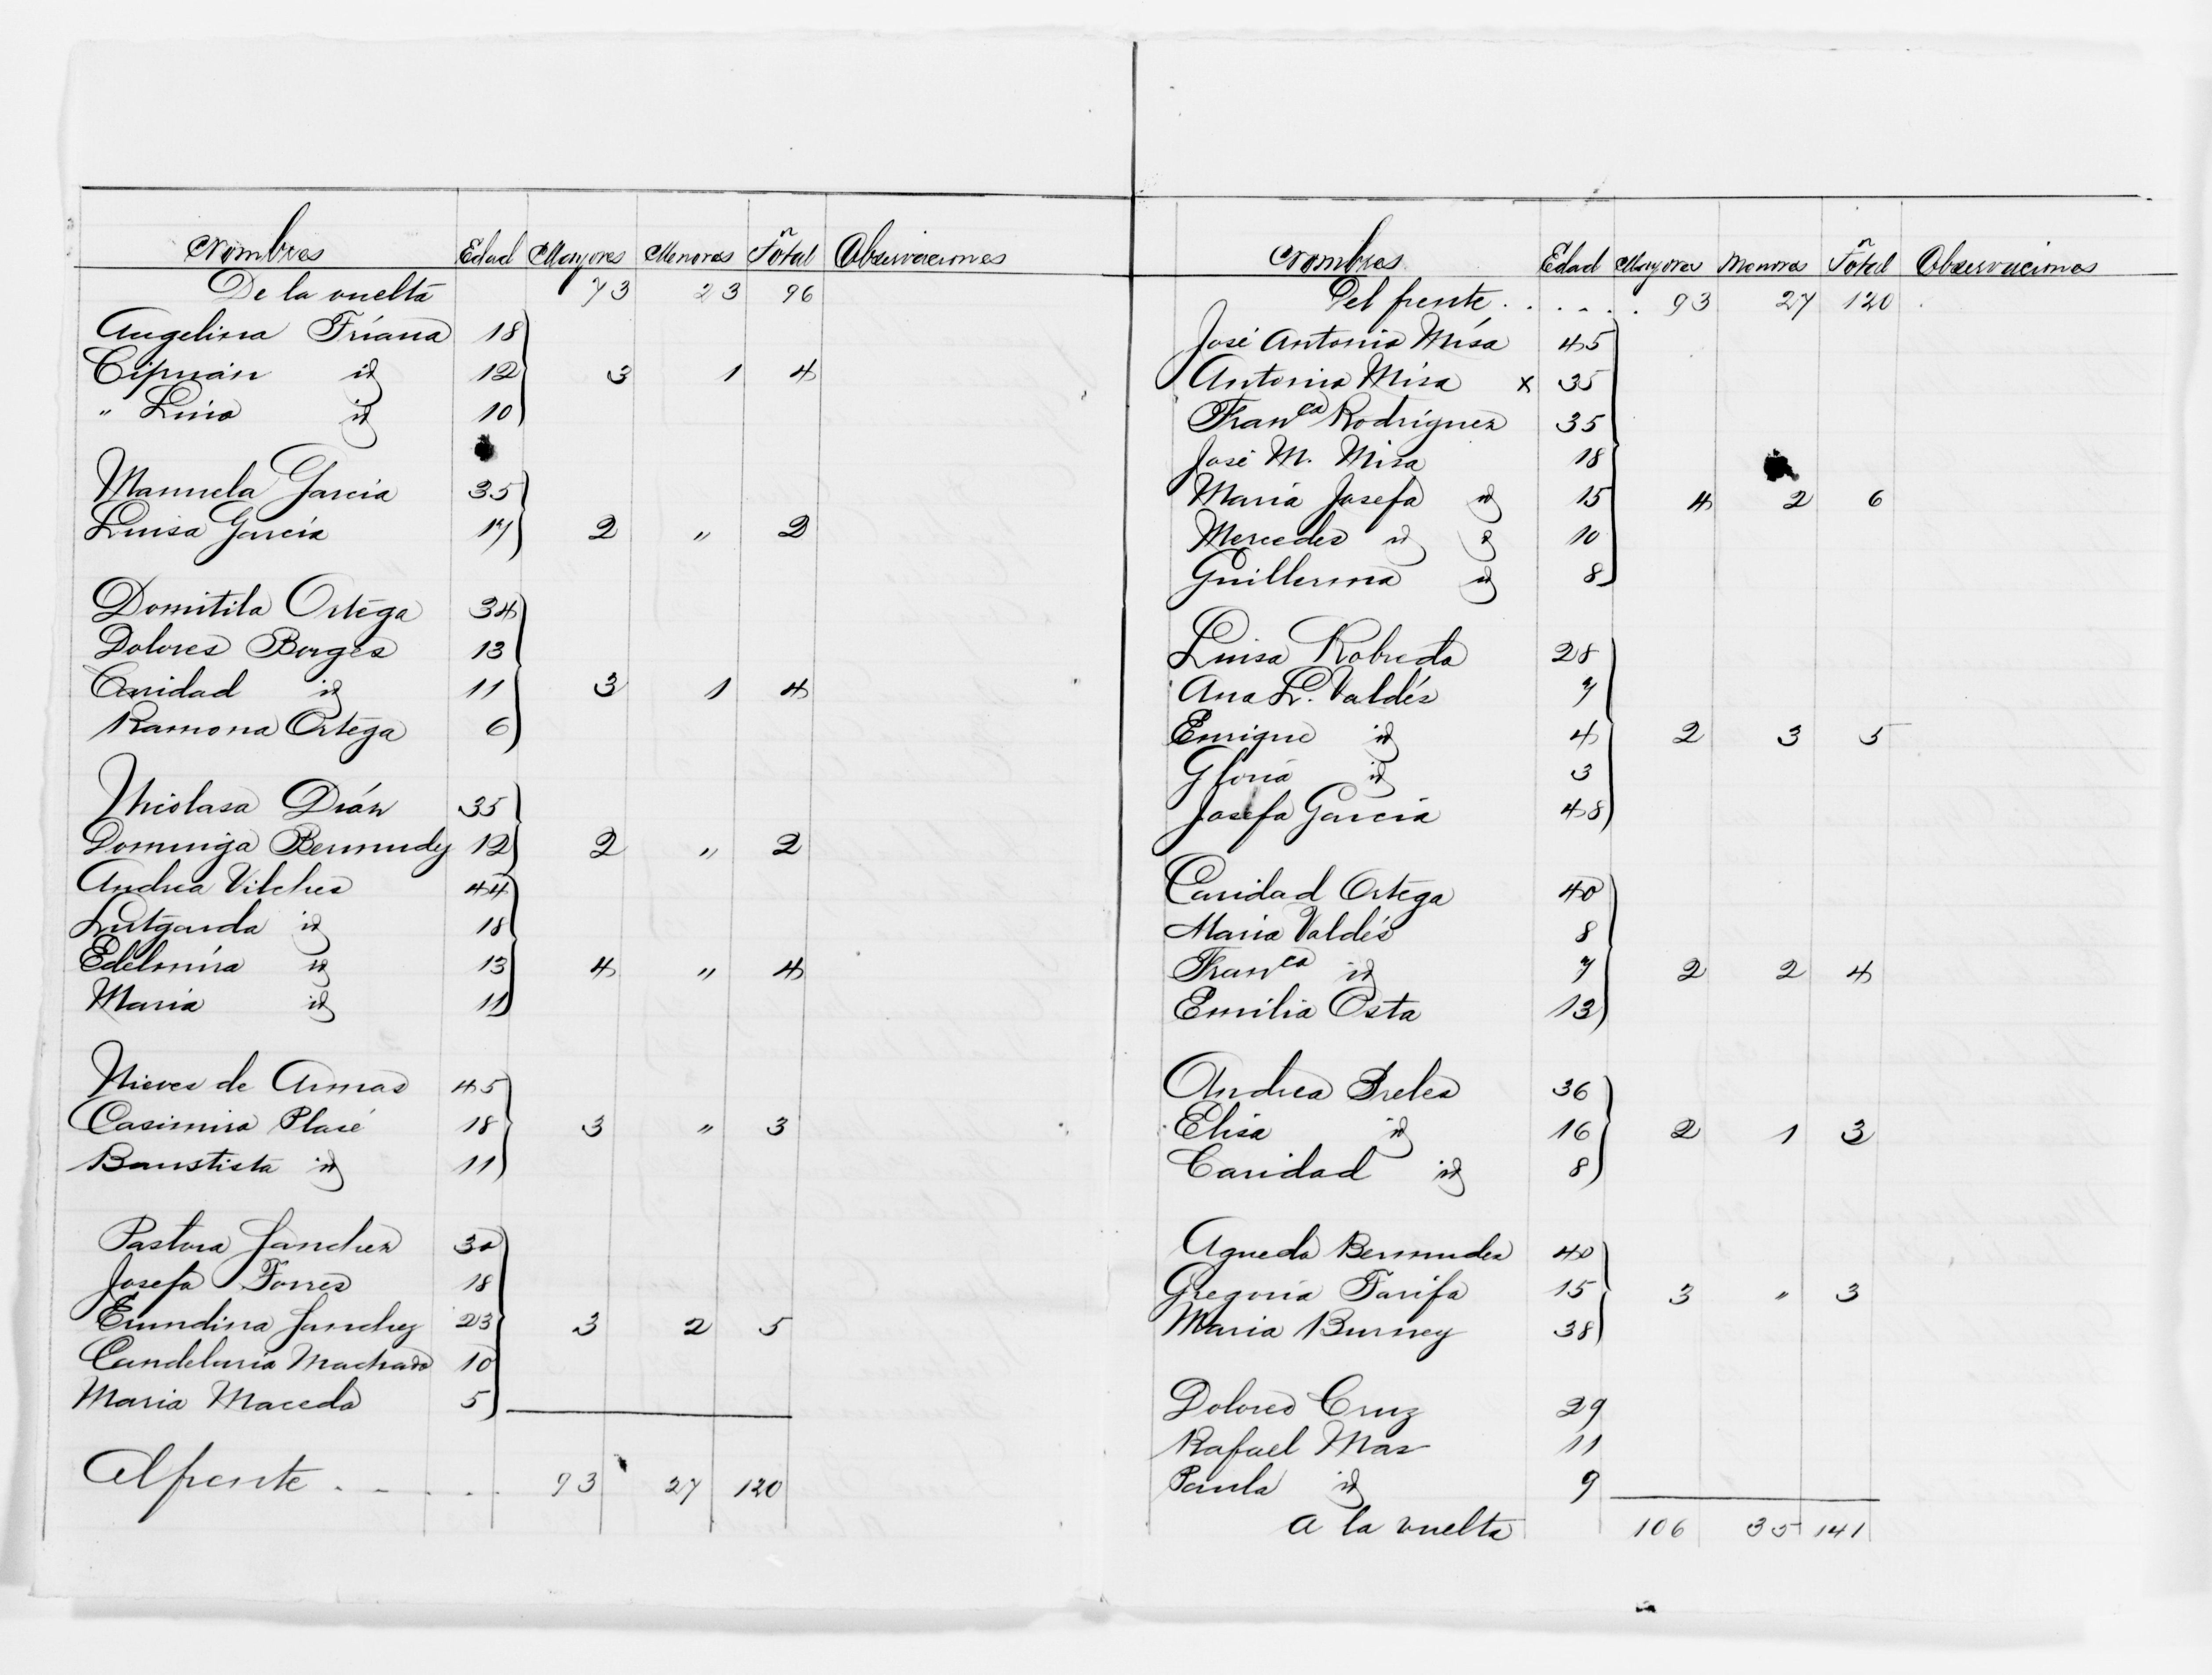 Nombres Edad Mayores Menores Total Observaciones
De la vuelta 73 23 96
Angelina Triana 18
Ciprian id 12 3 1 4
" Lino id 10
Manuela Garcia 35
Luisa Garcia 17 2 " 2
Domitila Ortega 34
Dolores Borges 13
Caridad id 11 3 1 4
Ramona Ortega 6
Nicolasa Dián 35
Dominga Bermudez 12 2 " 2
Andrea Vilches 44
Lutgarda id 18
Edelmira id 13 4 " 4
Maria id 11
Nieves de Armas 45
Casimira Placé 18 3 " 3
Baustista id 11
Pastora Sanchez 30
Josefa Torres 18
Erundina Sanchez 23 3 2 5
Candelaria Machado 10
Maria Maceda 5
Al frente . . . . . 93 27 120
Nombres Edad Mayores Menores Total Observaciones
Del frente . . . . . 93 27 120
José Antonio Misa 45
Antonia Misa x 35
Franca Rodriguez 35
José M. Misa 18
Maria Josefa id 15 4 2 6
Mercedes id 10
Guillerma id 8
Luisa Robredo 28
Ana L. Valdés 7
Enrique id 4 2 3 5
Gloria id 3
Josefa Garcia 48
Caridad Ortega 40
Maria Valdés 8
Franca id 7 2 2 4
Emilia Osta 13
Andrea Preles 36
Elisa id 16 2 1 3
Caridad id 8
Agueda Bermudez 40
Gregoria Tarifa 15 3 " 3
Maria Burney 38
Dolores Cruz 29
Rafael Mas 11
Paula id 9
A la vuelta 106 35 141